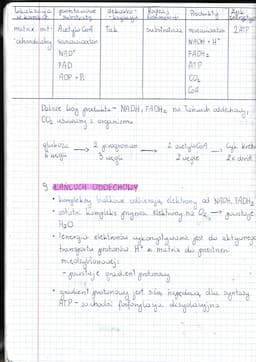 lokalizacja w komórce
powstawanie substraty
dekarbo-ksylacja
Rodzaj fosforylacji
Produkty
Zysk energetyczny
matrix mi-tochondrialny
Acetylo CoA
szczawiooctan
NAD⁺
FAD
ADP + Pi
Tak
substratowa
szczawiooctan
NADH + H⁺
FADH₂
ATP
CO₂
CoA
2 ATP
Dalsze losy produktów - NADH, FADH₂ na łańcuch oddechowy,
CO₂ usuwany z organizmu
glukoza → 2 pirogronian → 2 acetyloCoA → Cykl Krebsa
6 węgli 3 węgle 2 węgle 2x
9. ŁAŃCUCH ODDECHOWY
• kompleksy białkowe odbierają elektrony od NADH, FADH₂
• ostatni kompleks przenosi elektrony na O₂ → powstaje
H₂O
• energia elektronów wykorzystywana jest do aktywnego
transportu protonów H⁺ z matrix do przestrzeni
międzybłonowej:
- powstaje gradient protonowy
• gradient protonowy jest siłą napędową dla syntezy
ATP - zachodzi fosforylacja oksydacyjna